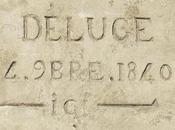 DELUGE
4. 9BRE. 1840
— ici —